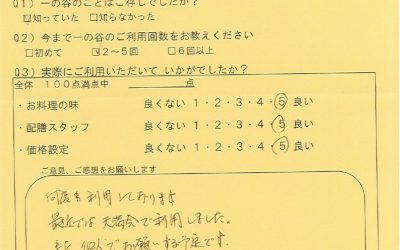 Q1）一の谷のことはご存じでしたか？
☑知っていた　□知らなかった
Q2）今まで一の谷のご利用回数をお教えください
□初めて　☑2～5回　□6回以上
Q3）実際にご利用いただいて いかがでしたか？
全体　100点満点中　　　　点
・お料理の味　良くない 1・2・3・4・5 良い
・配膳スタッフ　良くない 1・2・3・4・5 良い
・価格設定　良くない 1・2・3・4・5 良い
ご意見、ご感想をお願いします
何度も利用しております
最近では 天満会で利用しました。
また お願いする予定です。